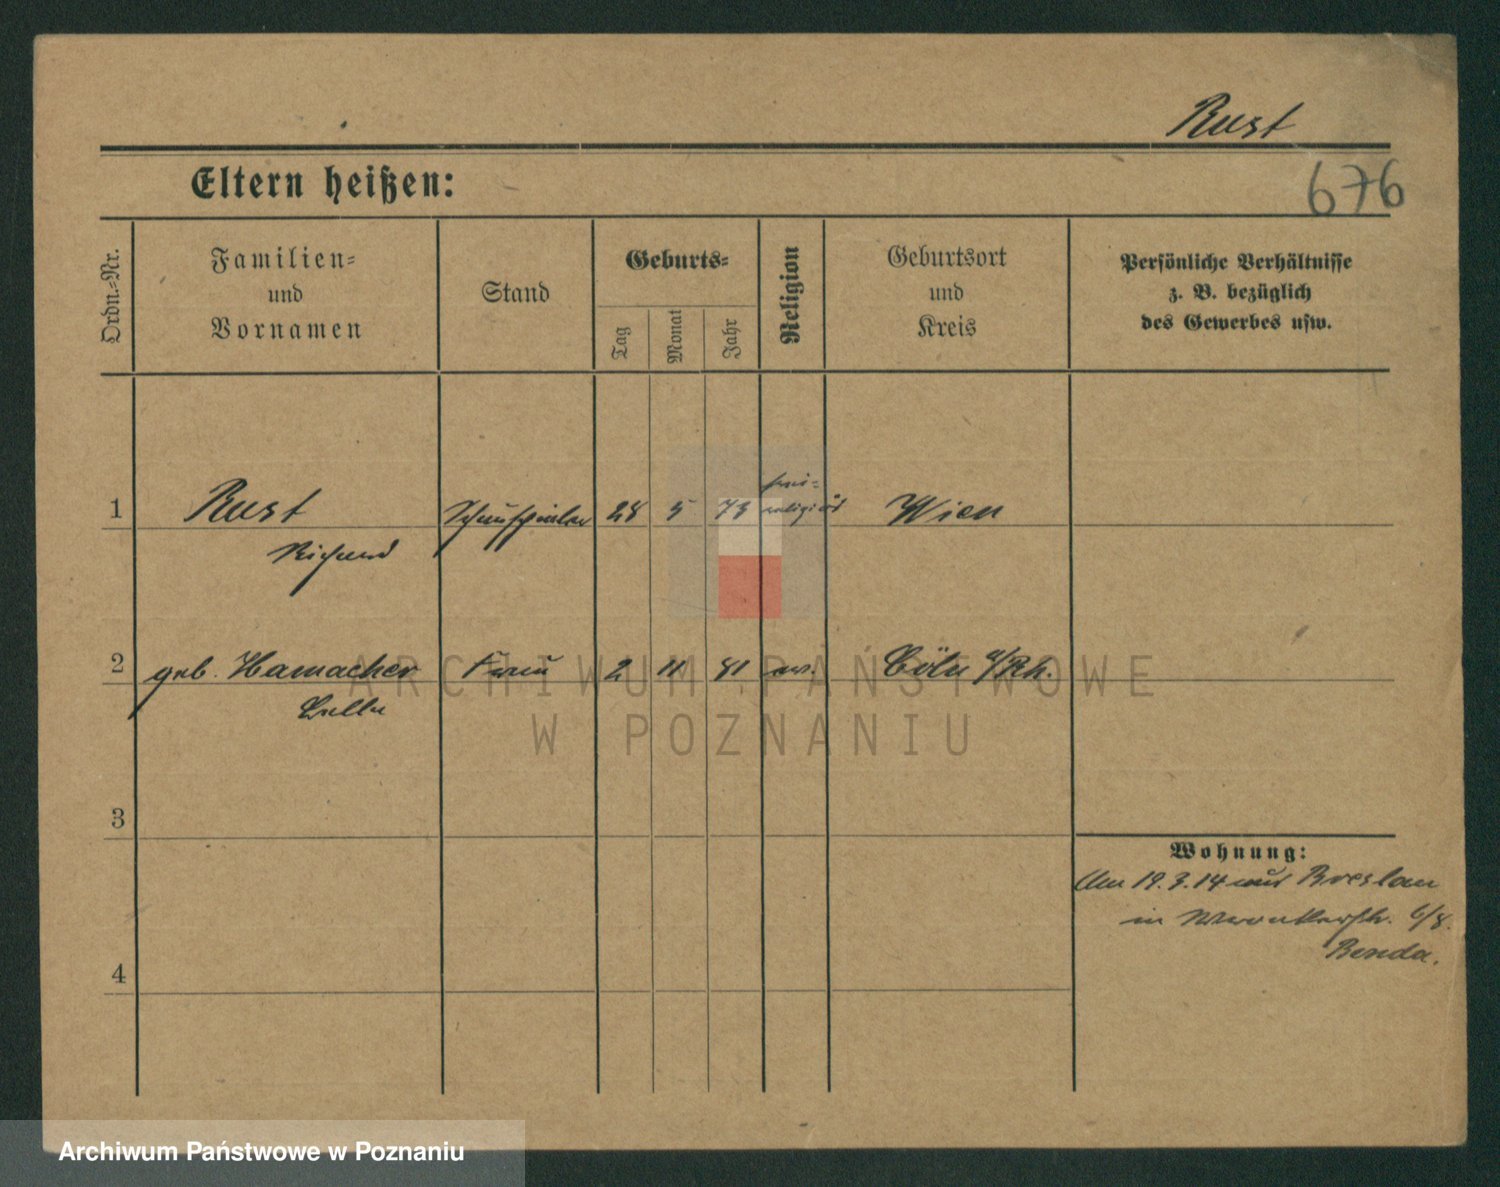 Rust
676
Eltern heißen:
Ordn.-Nr.
Familien-
und
Vornamen
Stand
Geburts-
Tag
Monat
Jahr
Religion
Geburtsort
und
Kreis
Persönliche Verhältnisse
z. B. bezüglich
des Gewerbes usw.
1 Rust Schauspieler 28 5 73 frei-
religiös Wien
Richard
2 geb. Hamacher Frau 2 11 81 ev. Cöln a/Rh.
3
4
Wohnung:
Am 19.3.14 aus Breslau
in Wronkerstr. 6/8.
Benda.
ARCHIWUM PAŃSTWOWE
W POZNANIU
Archiwum Państwowe w Poznaniu